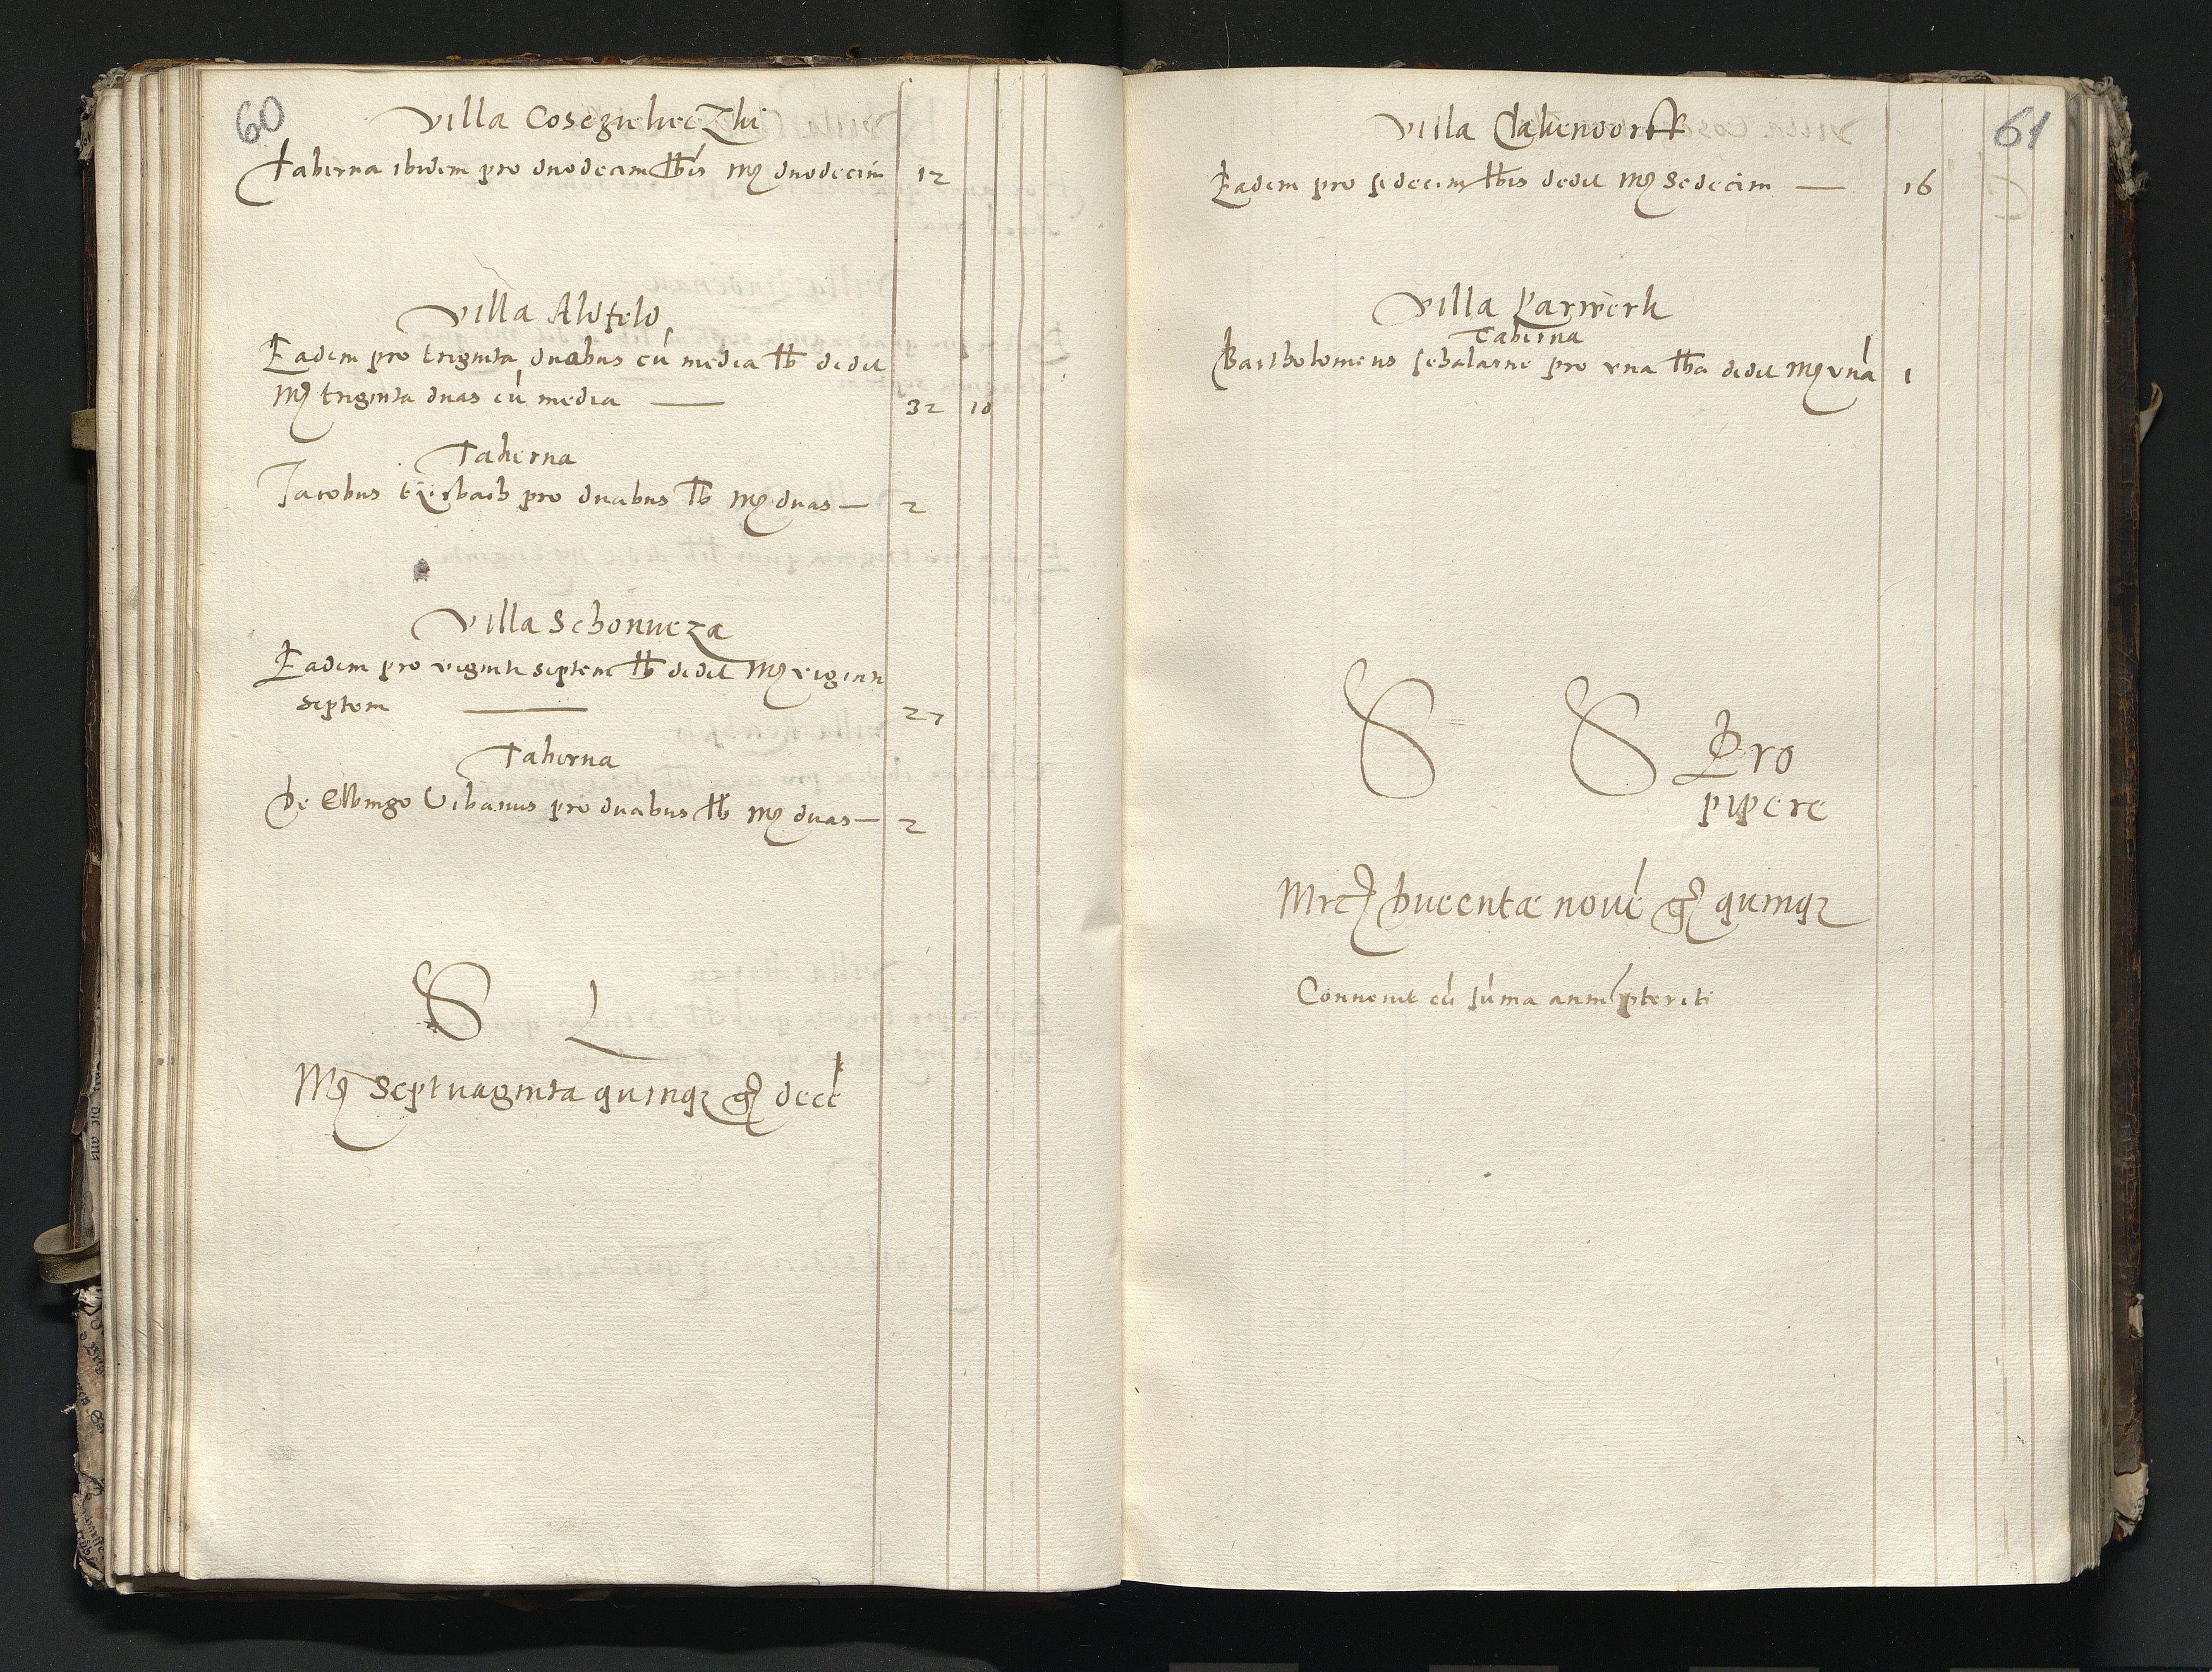 60
Villa Coscznheczhi
Taberna ibidem pro duodecim lbis Mrz duodecim 12
Villa Aldfeld
Eadem pro triginta duabus cū media lb dedit
Mrz triginta duas cū media — 32 10
Taberna
Jacobus pro duabus lb Mrz duas — 2
Villa Schonweza
Eadem pro viginti septem lb dedit Mrz viginti
septem — 27
Taberna
De Elbingo Urbanus pro duabus lb Mrz duas — 2
S L
Mrz Septuaginta quinqz gr decē
61
Villa
Eadem pro sedecim lbis dedit Mrz Sedecim — 16
Villa Parwerk
Taberna
Bartholomeus pro una lba dedit Mrz unā 1
S S Pro
pipere
Mrc Ducentæ novē gr quinqz
Convenit cū sūma anni pteriti